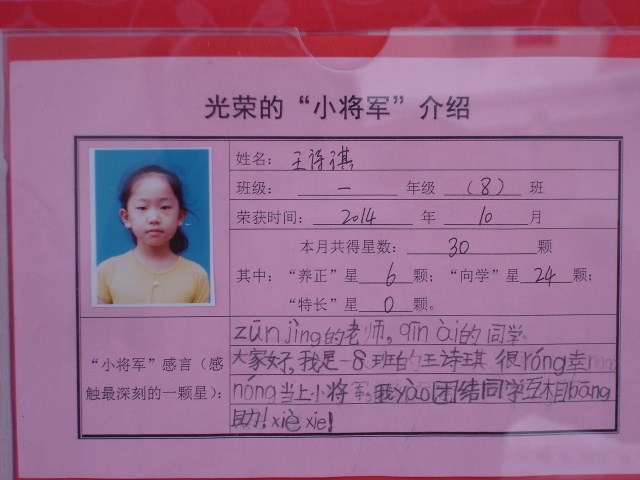 光荣的“小将军”介绍
姓名：王诗琪
班级：一年级（8）班
荣获时间：2014年10月
本月共得星数：30颗
其中：“养正”星6颗；“向学”星24颗；
“特长”星0颗。
“小将军”感言（感触最深刻的一颗星）：
zūn jìng的老师，qīn ài的同学
大家好，我是一8班的王诗琪 很róng幸
nóng当上小将军，我yào团结同学互相bāng
助！xiè xie！